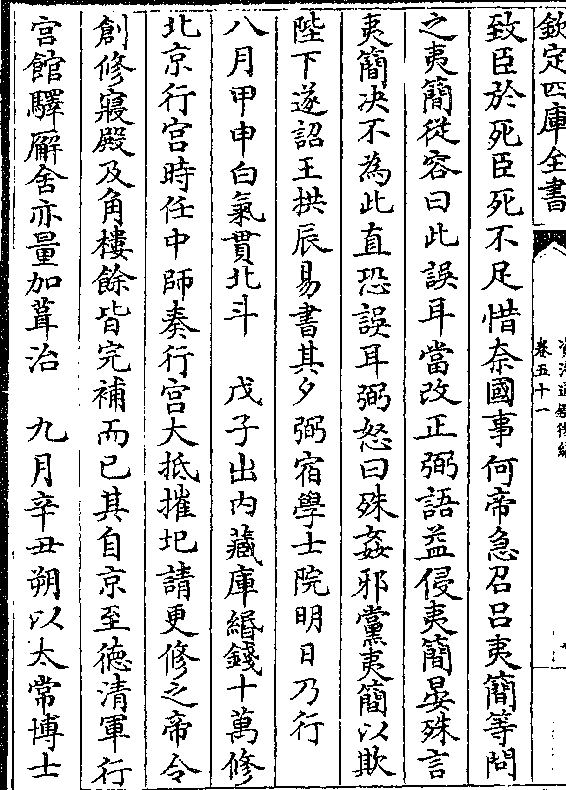 欽定四庫全書
資治通鑑後編
卷五十一
致臣於死臣死不足惜奈國事何帝急召呂夷簡等問
之夷簡從容曰此誤耳當改正弼語益侵夷簡晏殊言
夷簡决不為此直恐誤耳弼怒曰殊姦邪黨夷簡以欺
陛下遂詔王拱辰易書其夕弼宿學士院明日乃行
八月甲申白氣貫北斗　戊子出内藏庫緡錢十萬修
北京行宫時任中師奏行宫大抵摧圯請更修之帝令
創修寢殿及角樓餘皆完補而已其自京至德清軍行
宫館驛廨舍亦量加葺治　九月辛丑朔以太常博士